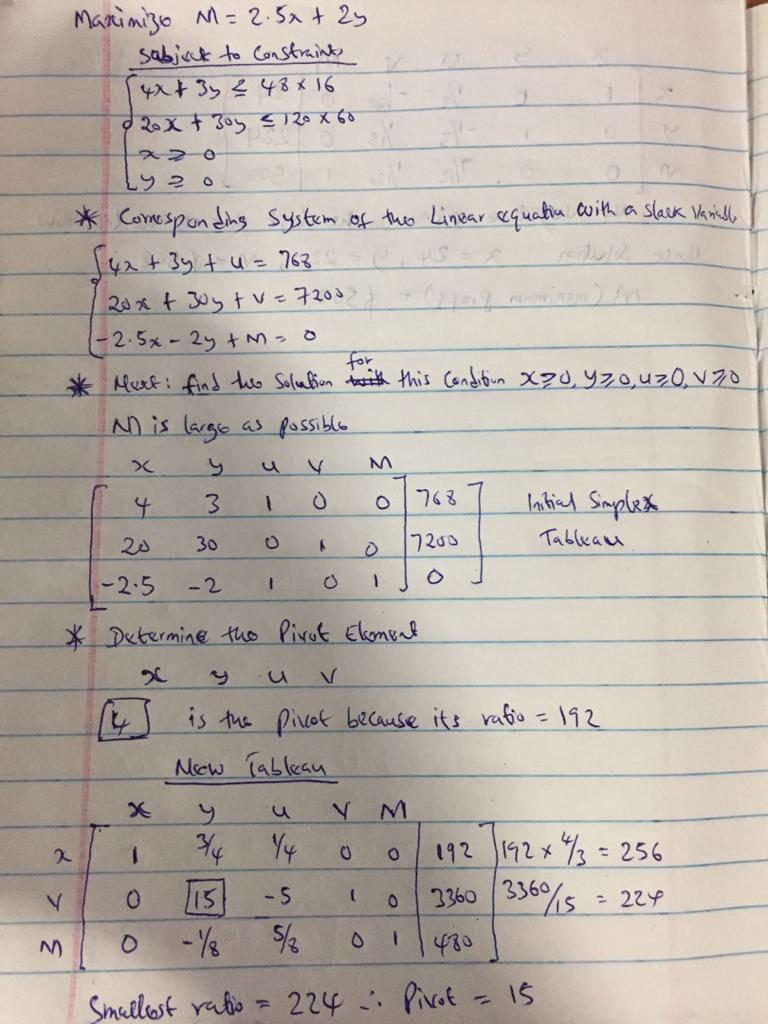 Maximize M = 2.5x + 2y
Subject to Constraints
4x + 3y ≤ 48 × 16
20x + 30y ≤ 120 × 60
x ≥ 0
y ≥ 0
* Corresponding System of the Linear equation with a slack Variable
4x + 3y + u = 768
20x + 30y + v = 7200
-2.5x - 2y + M = 0
* Next: find the Solution for this Condition x≥0, y≥0, u≥0, v≥0
M is large as possible
x y u v M
4 3 1 0 0 768 Initial Simplex
20 30 0 1 0 7200 Tableau
-2.5 -2 1 0 1 0
* Determine the Pivot Element
x y u v
4 is the pivot because its ratio = 192
New Tableau
x y u v M
x 1 3/4 1/4 0 0 192 192 × 4/3 = 256
v 0 15 -5 1 0 3360 3360/15 = 224
M 0 -1/8 5/8 0 1 480
Smallest ratio = 224 ∴ Pivot = 15